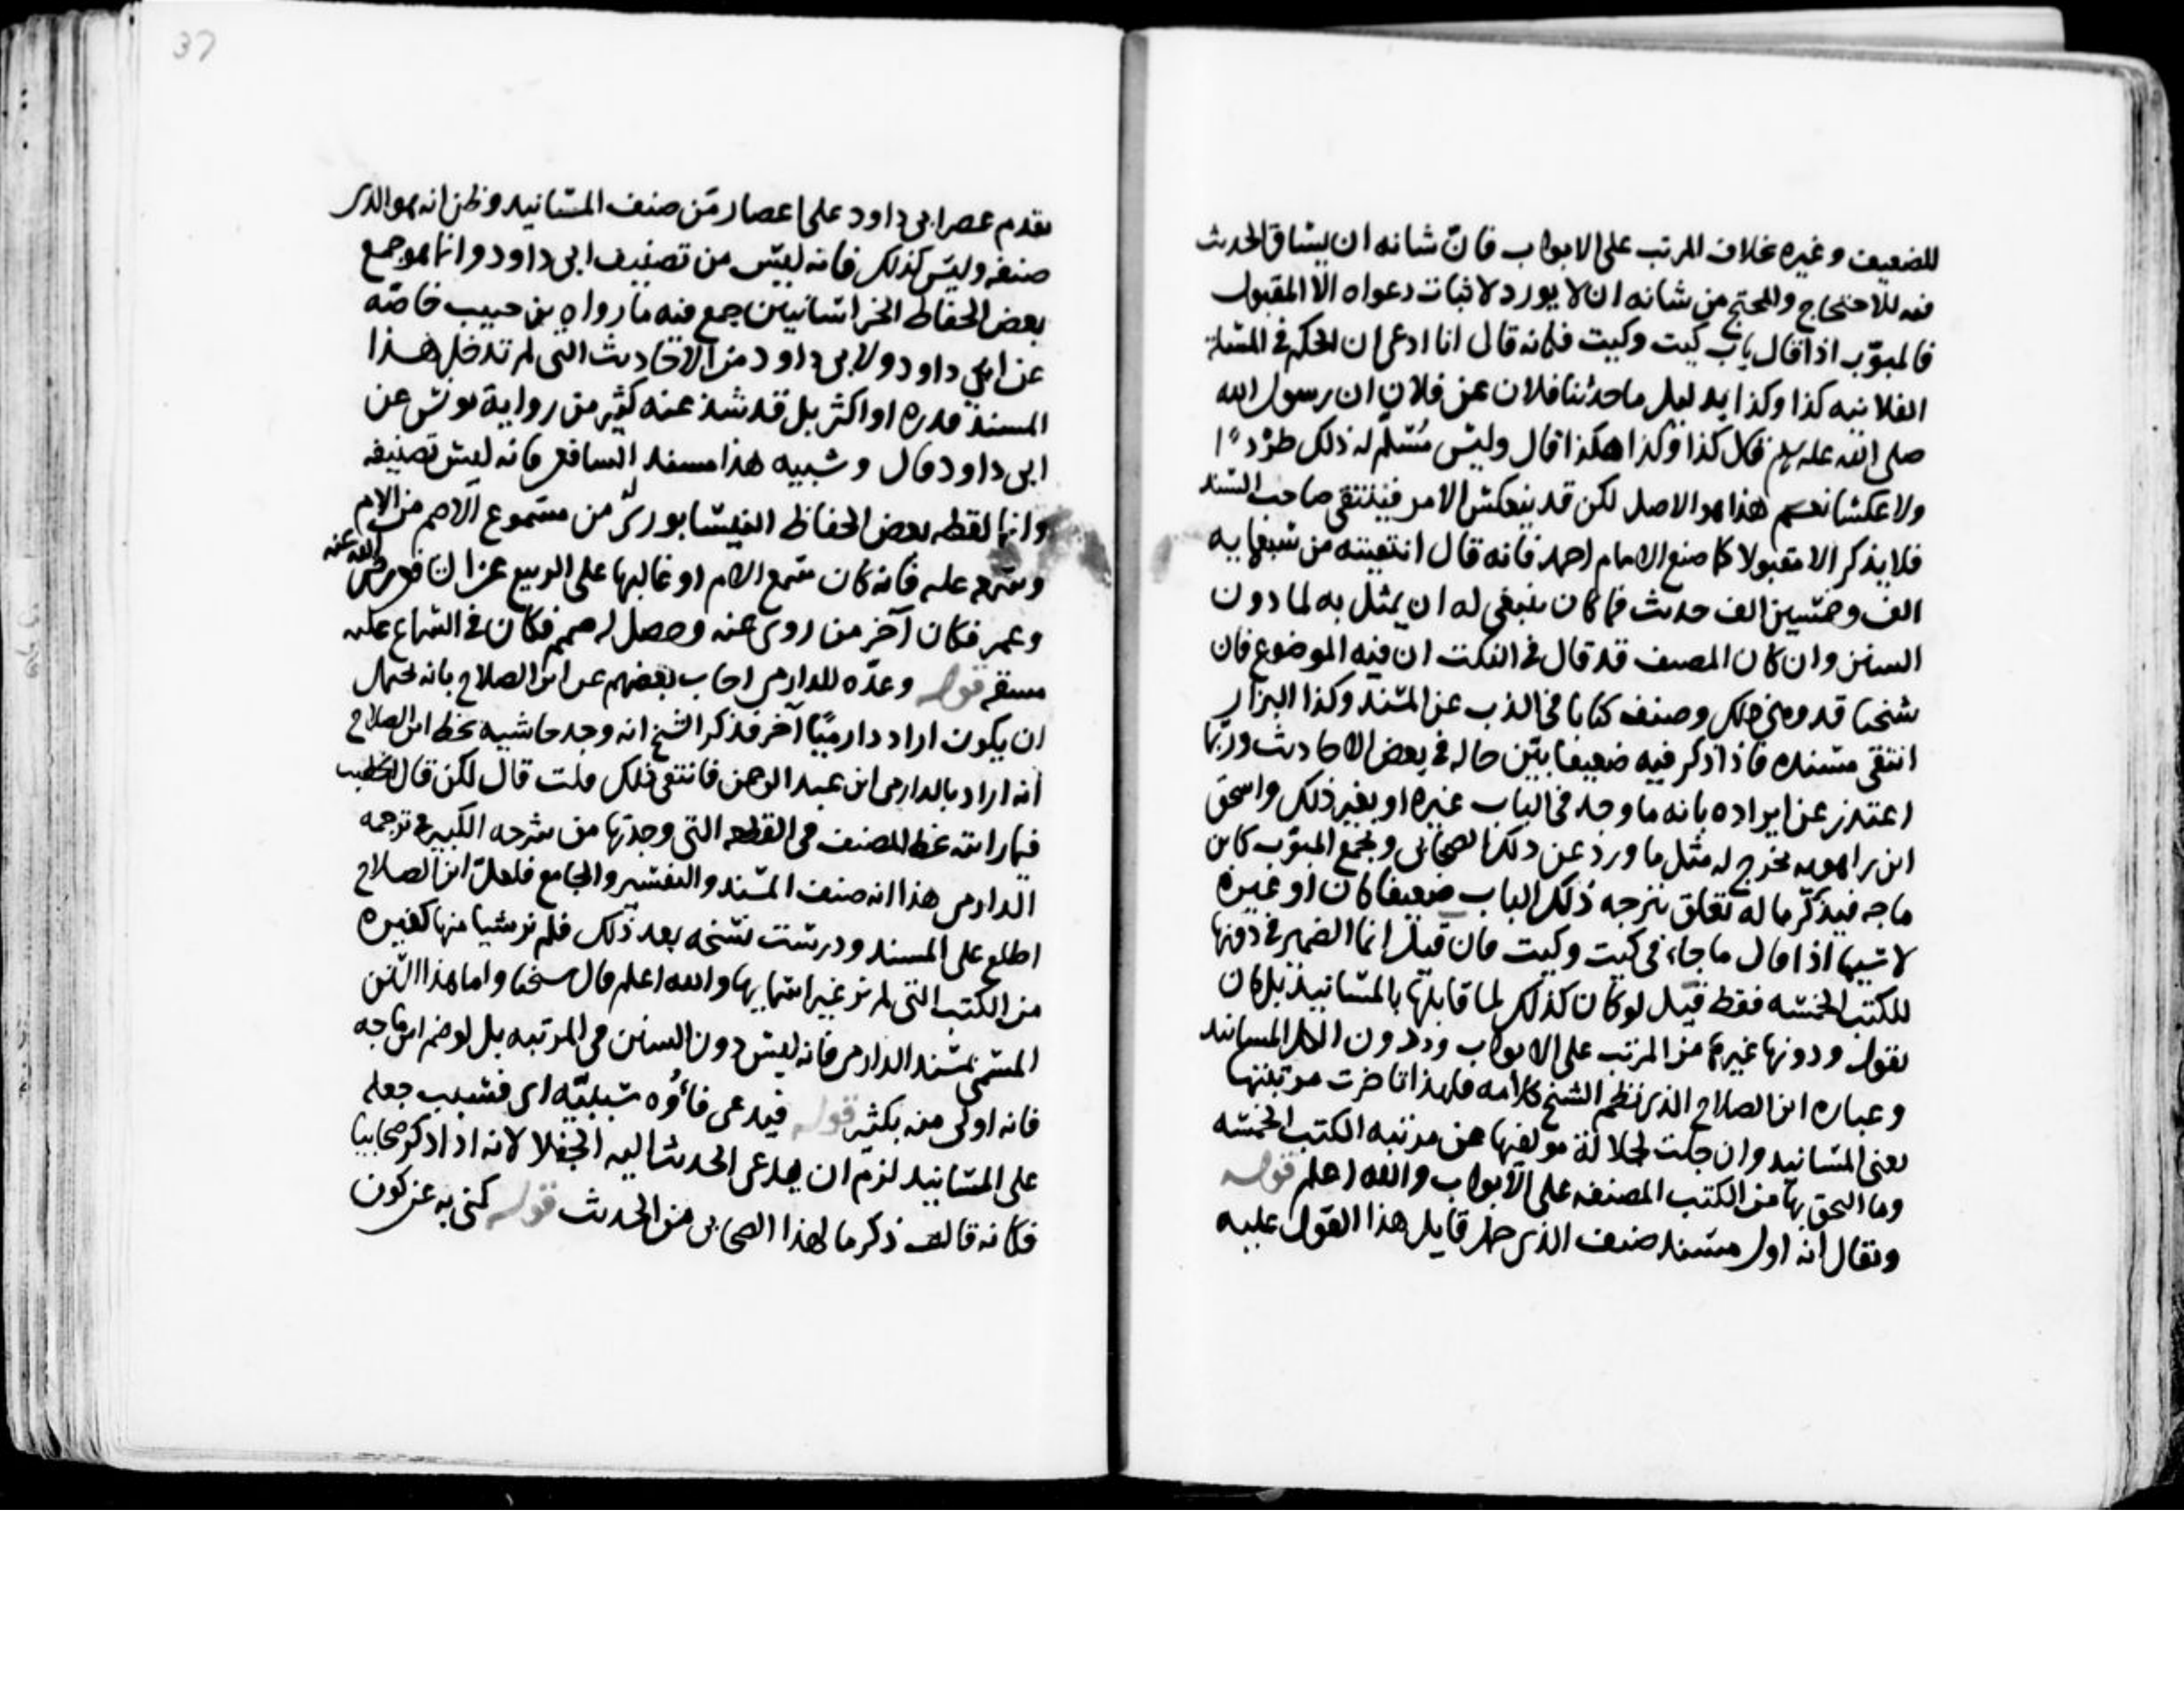 للضعيف وغيره بخلاف المرتب على الابواب فان شانه ان يساق الحديث
فيه للاحتجاج والمحتج من شانه ان لا يورد لاثبات دعواه الا المقبول
فالمبوّب اذا قال باب كيت وكيت فكانه قال انا ادعى ان الحكم في المسئلة
الفلانيه كذا وكذا بدليل ما حدثنا فلان عن فلان ان رسول الله
صلى الله عليه وسلم قال كذا وكذا هكذا قال وليس مُسَلّم له ذلك طرْدًا
ولا عكسا نعم هذا هو الاصل لكن قد ينعكس الامر فينتقى صاحب المسند
فلا يذكر الا مقبولا كما صنع الامام احمد فانه قال انتقيته من سبعمايه
الف وخمسين الف حديث فما كان ينبغي له ان يمثل به لما دون
السنن وان كان المصنف قد قال في النكت ان فيه الموضوع فان
شيخنا قد وهى ذلك وصنف كتابا في الذب عن المسند وكذا البزار
انتقى مسنده فاذا ذكر فيه ضعيفا بيّن حاله في بعض الاحاديث وربما
اعتذر عن ايراده بانه ما وجد في الباب غيره او بغير ذلك واسحق
ابن راهويه يخرج له مثل ما ورد عن ذلك الصحابي ويجمع المبوّب كابن
ماجه فيذكر ما له تعلق بترجمه ذلك الباب ضعيفا كان او غيره
لا سيما اذا قال ما جاء في كيت وكيت فان قيل انما الضمير في دونها
للكتب الخمسه فقط قيل لو كان كذلك لما قابلها بالمسانيد بل كان
يقول ودونها غيرها من المرتب على الابواب ودون المسانيد
وعباره ابن الصلاح الذي نظم الشيخ كلامه فلهذا تاخرت مرتبتها
يعنى المسانيد وان جلت لجلالة مولفيها عن مرتبه الكتب الخمسه
وما التحق بها من الكتب المصنفه على الابواب والله اعلم قوله
ويقال انه اول مسند صنف الذي حمل قايل هذا القول عليه
37
تقدم عصر ابي داود على اعصار من صنف المسانيد وظن انه هو الذى
صنفه وليس كذلك فانه ليس من تصنيف ابي داود وانما هو جمع
بعض الحفاظ الخراسانيين جمع فيه ما رواه بن حبيب خاصّه
عن ابي داود ولابي داود من الاحاديث التي لم تدخل هذا
المسند قدره او اكثر بل قد شذ عنه كثير من رواية يونس عن
ابي داود قال وشبيه هذا مسند الشافعي فانه ليس تصنيفه
وانما لقطه بعض الحفاظ النيسابوريّ من مسموع الاصم من الام
وسمعه عليه فانه كان سمع الام او غالبها على الربيع عن الشافعي رضى الله عنه
وعمر فكان آخر من روى عنه وحصل له صمم فكان في السماع عليه
مشقه قوله وعدّه للدارمي اجاب بعضهم عن ابن الصلاح بانه يحتمل
ان يكون اراد دارميًّا آخر فذكر الشيخ انه وجد حاشيه بخط ابن الصلاح
انه اراد بالدارمي ابن عبد الرحمن فانتفى ذلك قلت قال لكن قال الخطيب
فيما رايته بخط المصنف في القطعه التي وجدتها من شرحه الكبير في ترجمه
الدارمي هذا انه صنف المسند والتفسير والجامع فلعلّ ابن الصلاح
اطلع على المسند ودرست نسخه بعد ذلك فلم نر شيا منها كغيره
من الكتب التي لم نر غير اسمايها والله اعلم قال شيخنا واما هذا السنن
المسمى بمسند الدارمي فانه ليس دون السنن في المرتبه بل لو ضم ابن ماجه
فانه اولى منه بكثير قوله فيدعى فاؤُه سببيّه اى فسبب جعله
على المسانيد لزم ان يدعى الحديث اليه الجفلا لانه اذا ذكر صحابيا
فكانه قال ذكر ما لهذا الصحابي من الحديث قوله كنى به عن كون